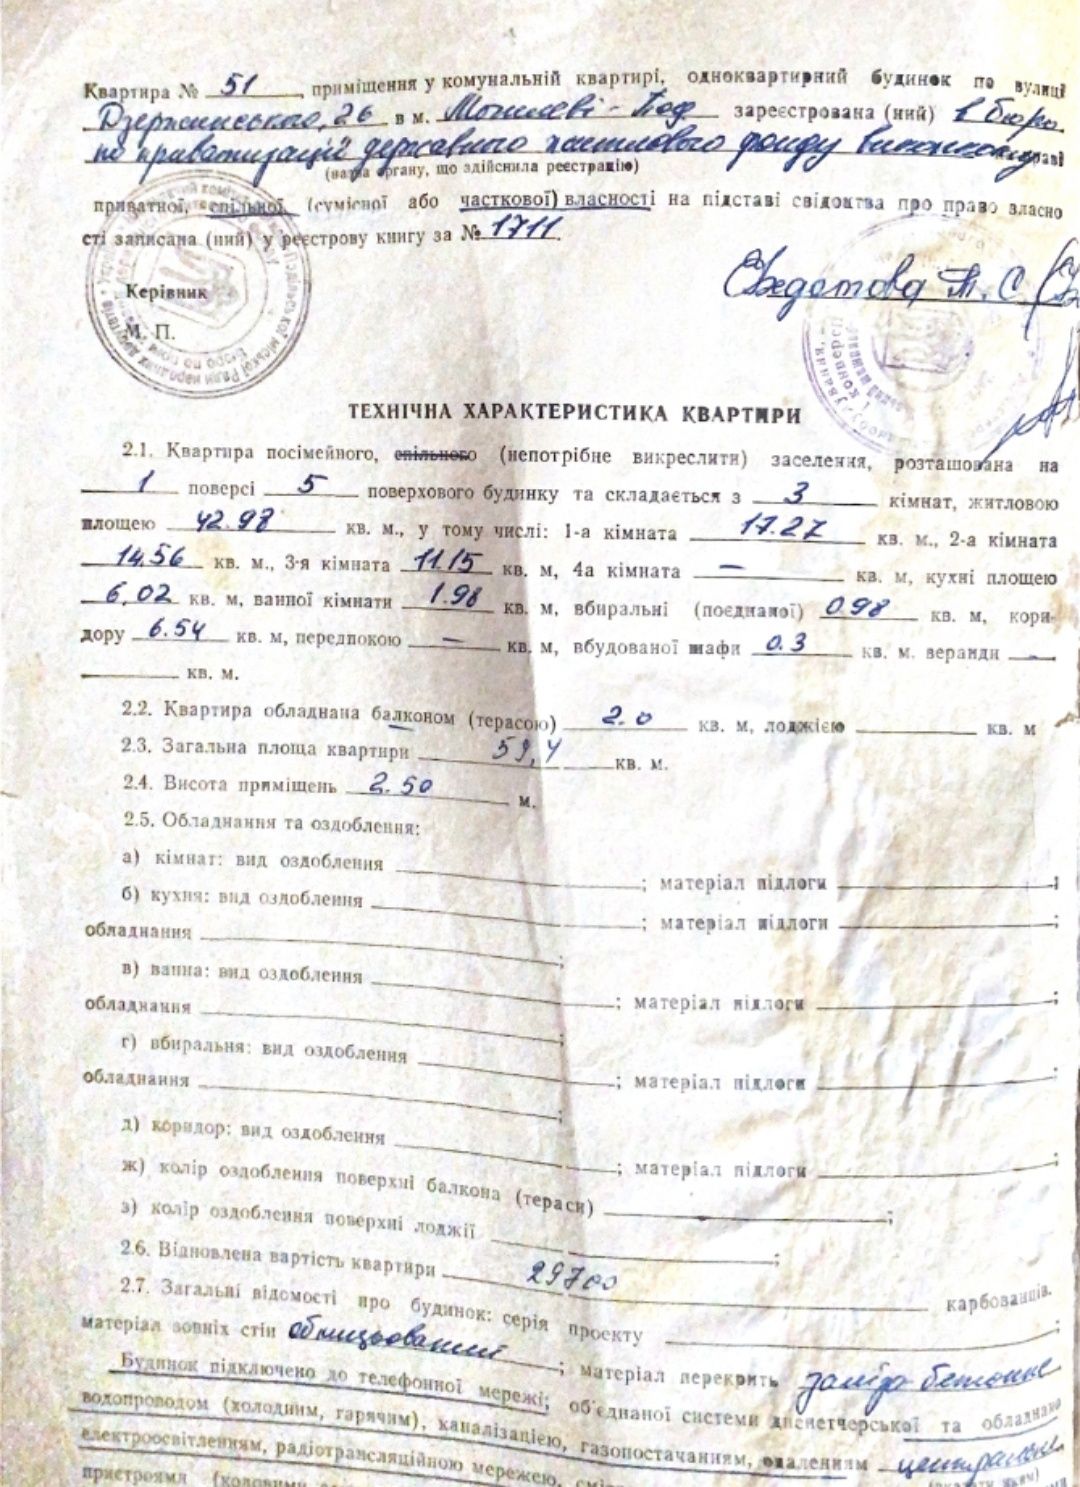 Квартира № 51, приміщення у комунальній квартирі, одноквартирний будинок по вулиці
Дзержинського, 26 в м. Могилеві-Под зареєстрована (ний) в бюро
по приватизації державного житлового фонду виконкому
(назва органу, що здійснила реєстрацію)
приватної, спільної, (сумісної або часткової) власності на підставі свідоцтва про право власно
сті записана (ний) у реєстрову книгу за № 1711.
Керівник
М. П.
ТЕХНІЧНА ХАРАКТЕРИСТИКА КВАРТИРИ
2.1. Квартира посімейного, спільного (непотрібне викреслити) заселення, розташована на
1 поверсі 5 поверхового будинку та складається з 3 кімнат, житловою
площею 42.98 кв. м., у тому числі: 1-а кімната 17.27 кв. м., 2-а кімната
14.56 кв. м., 3-я кімната 11.15 кв. м, 4а кімната — кв. м, кухні площею
6,02 кв. м, ванної кімнати 1.98 кв. м, вбиральні (поєднаної) 0.98 кв. м, кори-
дору 6.54 кв. м, передпокою — кв. м, вбудованої шафи 0.3 кв. м. веранди —
кв. м.
2.2. Квартира обладнана балконом (терасою) 2.0 кв. м, лоджією кв. м
2.3. Загальна площа квартири 59,4 кв. м.
2.4. Висота приміщень 2.50 м.
2.5. Обладнання та оздоблення:
а) кімнат: вид оздоблення ; матеріал підлоги ;
б) кухня: вид оздоблення ; матеріал підлоги ;
обладнання ;
в) ванна: вид оздоблення ; матеріал підлоги ;
обладнання ;
г) вбиральня: вид оздоблення ; матеріал підлоги ;
обладнання ;
д) коридор: вид оздоблення ; матеріал підлоги ;
ж) колір оздоблення поверхні балкона (тераси) ;
з) колір оздоблення поверхні лоджії ;
2.6. Відновлена вартість квартири 29700 карбованців.
2.7. Загальні відомості про будинок: серія проекту ;
матеріал зовніх стін облицьований ; матеріал перекрить заліզо бетонне
Будинок підключено до телефонної мережі; об'єднаної системи диспетчерської та обладнано
водопроводом (холодним, гарячим), каналізацією, газопостачанням, опаленням центральне
електроосвітленням, радіотрансляційною мережею,
пристроями